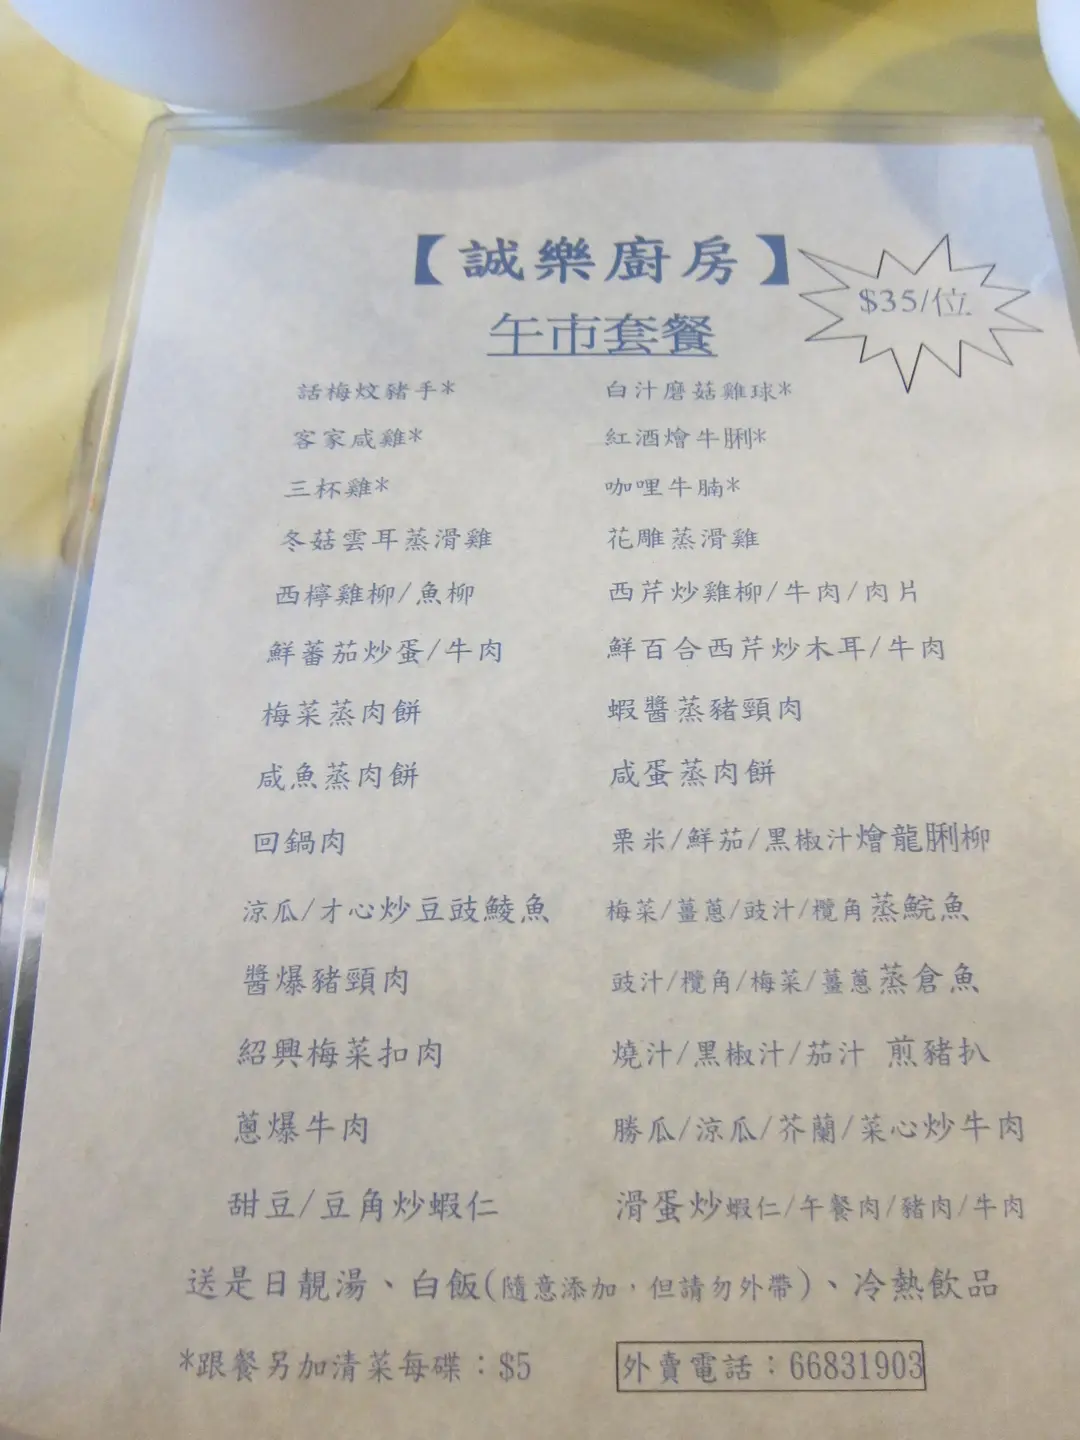 【誠樂廚房】
$35/位
午市套餐
話梅炆豬手*
白汁磨菇雞球*
客家咸雞*
紅酒燴牛脷*
三杯雞*
咖哩牛腩*
冬菇雲耳蒸滑雞
花雕蒸滑雞
西檸雞柳/魚柳
西芹炒雞柳/牛肉/肉片
鮮蕃茄炒蛋/牛肉
鮮百合西芹炒木耳/牛肉
梅菜蒸肉餅
蝦醬蒸豬頸肉
咸魚蒸肉餅
咸蛋蒸肉餅
回鍋肉
栗米/鮮茄/黑椒汁燴龍脷柳
涼瓜/才心炒豆豉鯪魚
梅菜/薑蔥/豉汁/欖角蒸鯇魚
醬爆豬頸肉
豉汁/欖角/梅菜/薑蔥蒸倉魚
紹興梅菜扣肉
燒汁/黑椒汁/茄汁 煎豬扒
蔥爆牛肉
勝瓜/涼瓜/芥蘭/菜心炒牛肉
甜豆/豆角炒蝦仁
滑蛋炒蝦仁/午餐肉/豬肉/牛肉
送是日靚湯、白飯(隨意添加，但請勿外帶)、冷熱飲品
*跟餐另加清菜每碟：$5
外賣電話：66831903